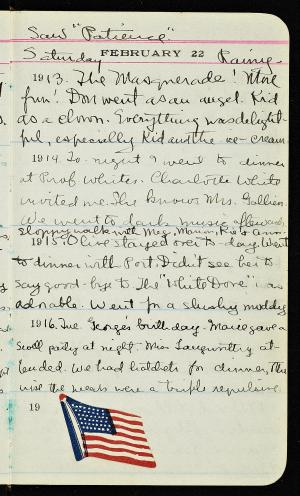 Saw "Patience"
Saturday FEBRUARY 22 Rainy.
1913. The Masquerade! More
fun! Dot went as an angel. Kid
as a clown. Everything was delight-
ful, especially Kid and the ice-cream.
1914. To-night I went to dinner
at Prof. White's. Charlotte White
invited me. She knows Mrs. Gallien.
We went to hear music afterward.
Sloppy walk with Meg,
1915. Olive stayed over to-day. Went
to dinner with Port. Didn't see her to
say good-bye to. The "White Dove" is as
adorable. Went for a slushy
1916. Tue. George's birthday. Marie gave a
party at night. Miss Langworthy at-
tended. We had hatchets for dinner,
wise the meals were a triple repulsive.
19